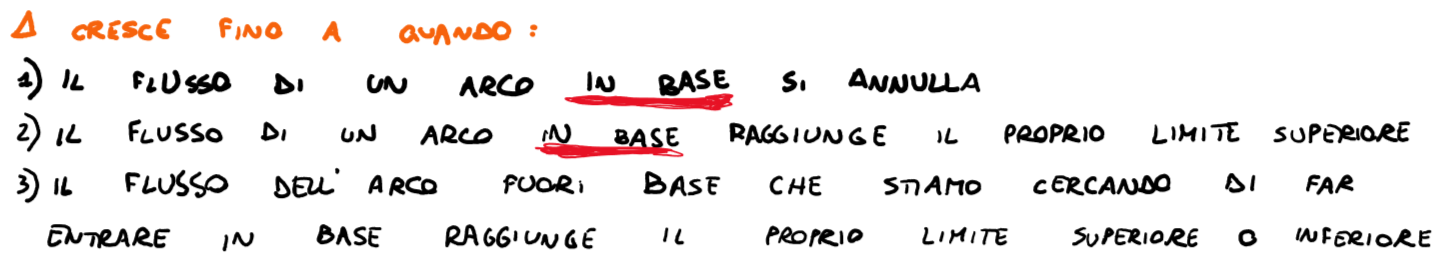 Δ CRESCE FINO A QUANDO:
1) IL FLUSSO DI UN ARCO IN BASE SI ANNULLA
2) IL FLUSSO DI UN ARCO IN BASE RAGGIUNGE IL PROPRIO LIMITE SUPERIORE
3) IL FLUSSO DELL'ARCO FUORI BASE CHE STIAMO CERCANDO DI FAR
ENTRARE IN BASE RAGGIUNGE IL PROPRIO LIMITE SUPERIORE O INFERIORE